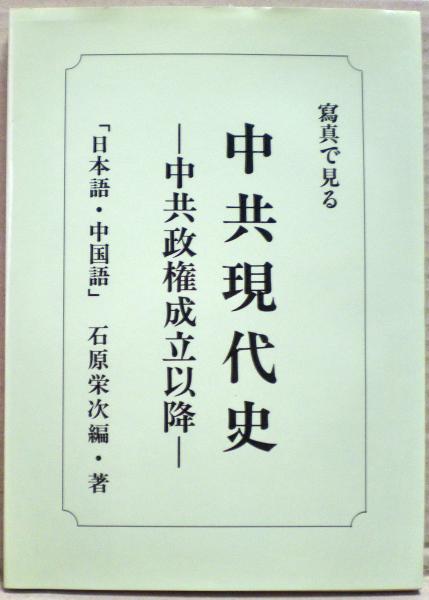 寫真で見る
中共現代史
―中共政権成立以降―
「日本語・中国語」 石原栄次編・著